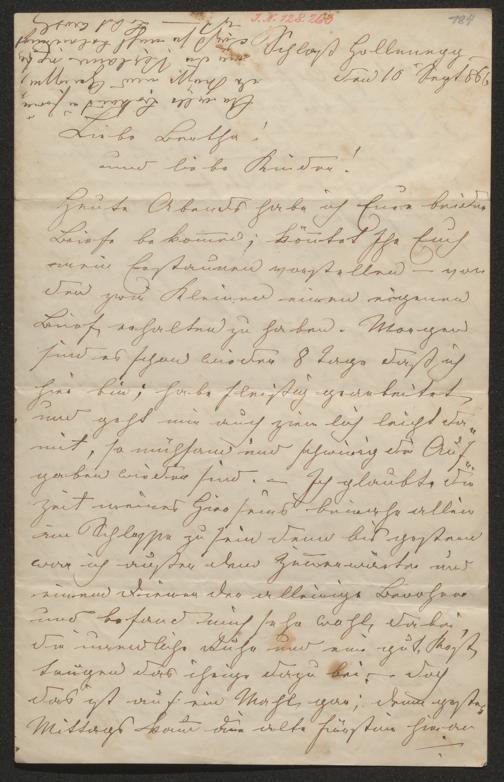 I.N. 128.260
184
Schloß Hollenegg
den 10 Sept 886
Liebe Bertha!
und liebe Kinder!
Heute Abends habe ich Eure beiden
Briefe bekommen; könntet Ihr Euch
mein Erstaunen vorstellen – von
den zwei Kleinen einen eigenen
Brief erhalten zu haben. Morgen
sind es schon wieder 8 Tage daß ich
hier bin; habe fleißig gearbeitet
und geht mir auch ziemlich leicht da-
mit, so mühsam und schwierig die Auf-
gaben wieder sind. – Ich glaubte die
Zeit meines Hierseins beinahe allein
im Schlosse zu sein denn bis gestern
war ich außer dem Zimmerwärter und
einem Diener der alleinige Bewohner
und befand mich sehr wohl dabei,
die unendliche Ruhe und eine gute Kost
trugen das ihrige dazu bei. – Doch
das ist auf ein Mahl gar; denn gestern
Mittags kam die alte Fürstin hier an